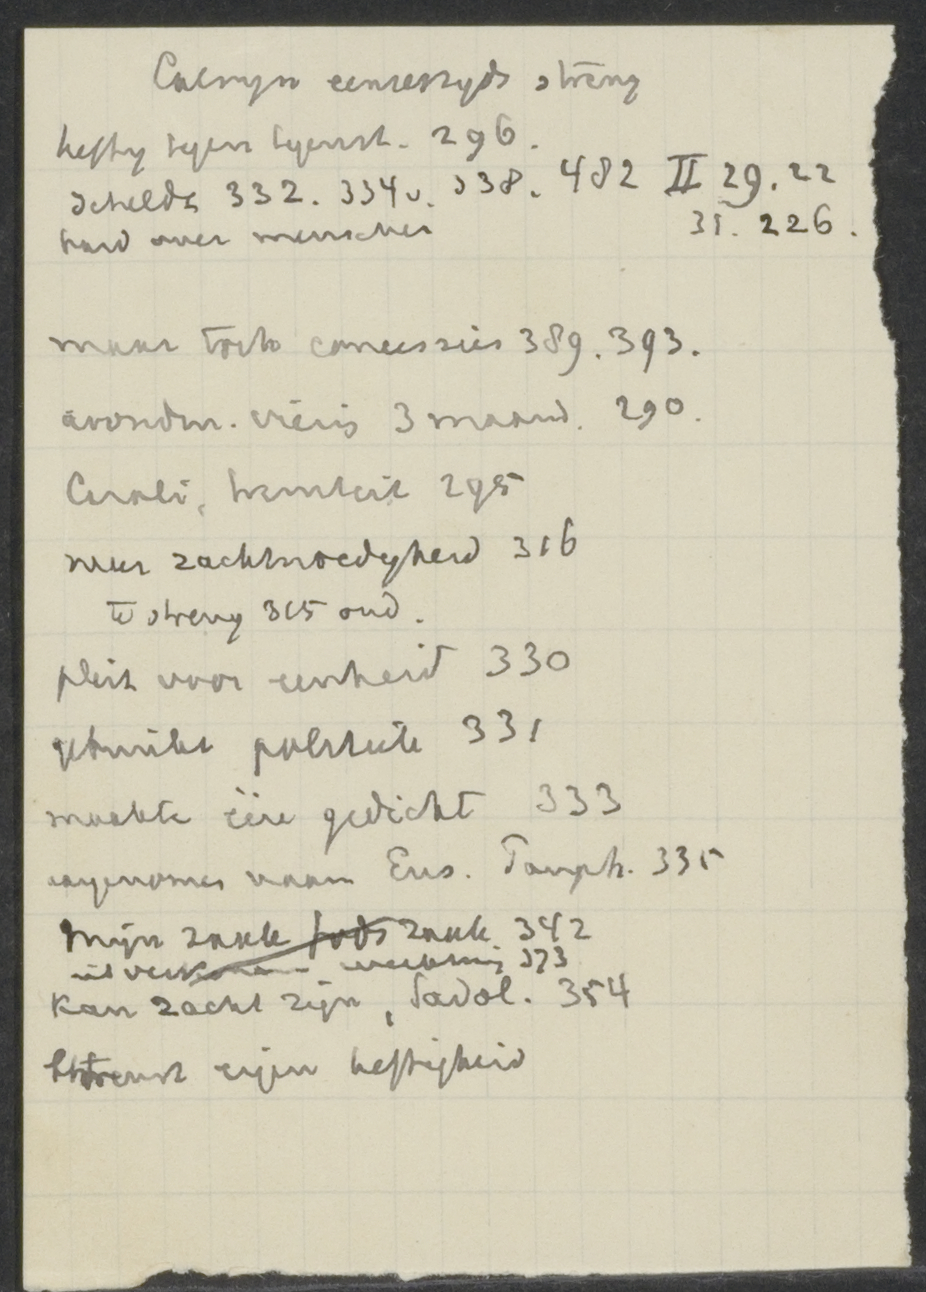 Calvyn eenerzyds streng
heftig tegen tegenst. 296.
scheldt 332. 334v. 338. 482 II 29. 22
hard over menschen 31. 226.
maar toch concessies 389. 393.
avondm. viering 3 maand. 290.
Caroli, 295
meer zachtmoedigheid 316
te streng 315 ond.
pleit voor eenheid 330
gebruikt politiek 331
maakte één gedicht 333
aangenomen naam Eus. Pamph. 335
Mijn zaak Gods zaak 342
373
Kan zacht zijn, Sadol. 354
eigen heftigheid